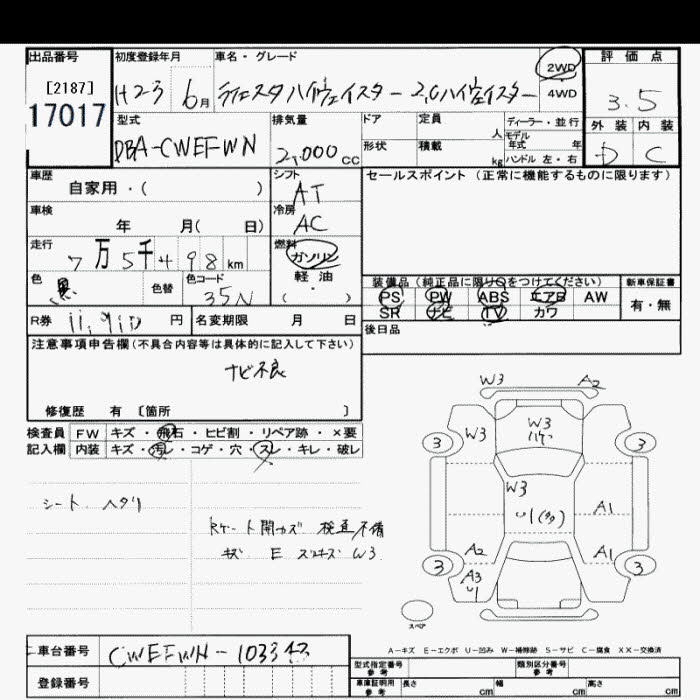 出品番号
[2187]
17017
初度登録年月
H23 6月
車名・グレード
2WD
4WD
評価点
3.5
外装 内装
D C
型式
DBA-CWEFWN
排気量
2,000 cc
ドア
形状
定員 人
積載 kg
ディーラー・並行
モデル年式 年
ハンドル 左・右
車歴
自家用・( )
シフト
AT
冷房
AC
車検
年 月( 日)
走行
7万5千498km
燃料
ガソリン
軽・油
・
( )
色
黒
色替
色コード
35N
セールスポイント (正常に機能するものに限ります)
装備品 (純正品に限り○をつけてください)
PS PW ABS エアB AW
SR ナビ TV カワ
新車保証書
有・無
後日品
R券 円
名変期限 月 日
注意事項申告欄 (不具合内容等は具体的に記入して下さい)
ナビ不良
修復歴 有 〔箇所 〕
検査員
記入欄
FW キズ・飛石・ヒビ割・リペア跡・×要
内装 キズ・汚レ・コゲ・穴・スレ・キレ・破レ
シート ヘタリ
検査不備
キズ E W3
W3 A2
W3 W3
ハゲ
3 3
W3
A1
A2 A1
3 3
A3
スペア
A-キズ E-エクボ U-凹み W-補修跡 S-サビ C-腐食 XX-交換済
車台番号
登録番号
型式指定番号
参考
類別区分番号
参考
車庫証明用
参考
長さ cm
幅 cm
高さ cm